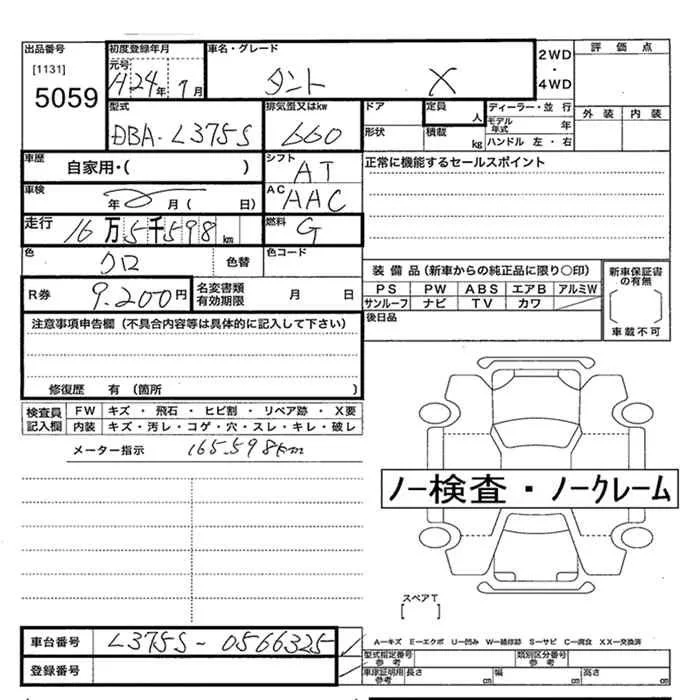 出品番号 初度登録年月 車名・グレード 2WD・4WD 評価点
[1131] 元号 H 24年 9月 タント X
5059
型式 DBA-L375S 排気量又はkw 660 ドア 定員 人 ディーラー・並行 外装 内装
形状 積載 kg モデル年式 年
ハンドル 左・右
車歴 自家用・( ) シフト AT 正常に機能するセールスポイント
車検 年 月( 日) AC AAC
走行 16万5千598km 燃料 G
色 クロ 色替 色コード
装備品(新車からの純正品に限り〇印) 新車保証書の有無
R券 9,200円 名変書類有効期限 月 日 PS PW ABS エアB アルミW
サンルーフ ナビ TV カワ
注意事項申告欄(不具合内容等は具体的に記入して下さい) 後日品 車載不可
修復歴 有(箇所 )
検査員記入欄 FW キズ・飛石・ヒビ割・リペア跡・X要
内装 キズ・汚レ・コゲ・穴・スレ・キレ・破レ
メーター指示 165,598km
ノー検査・ノークレーム
スペアT
[ ]
車台番号 L375S-0566325 A-キズ E-エクボ U-凹み W-補修跡 S-サビ C-腐食 XX-交換済
登録番号 型式指定番号 参考 類別区分番号 参考
車庫証明用参考 長さ cm 幅 cm 高さ cm